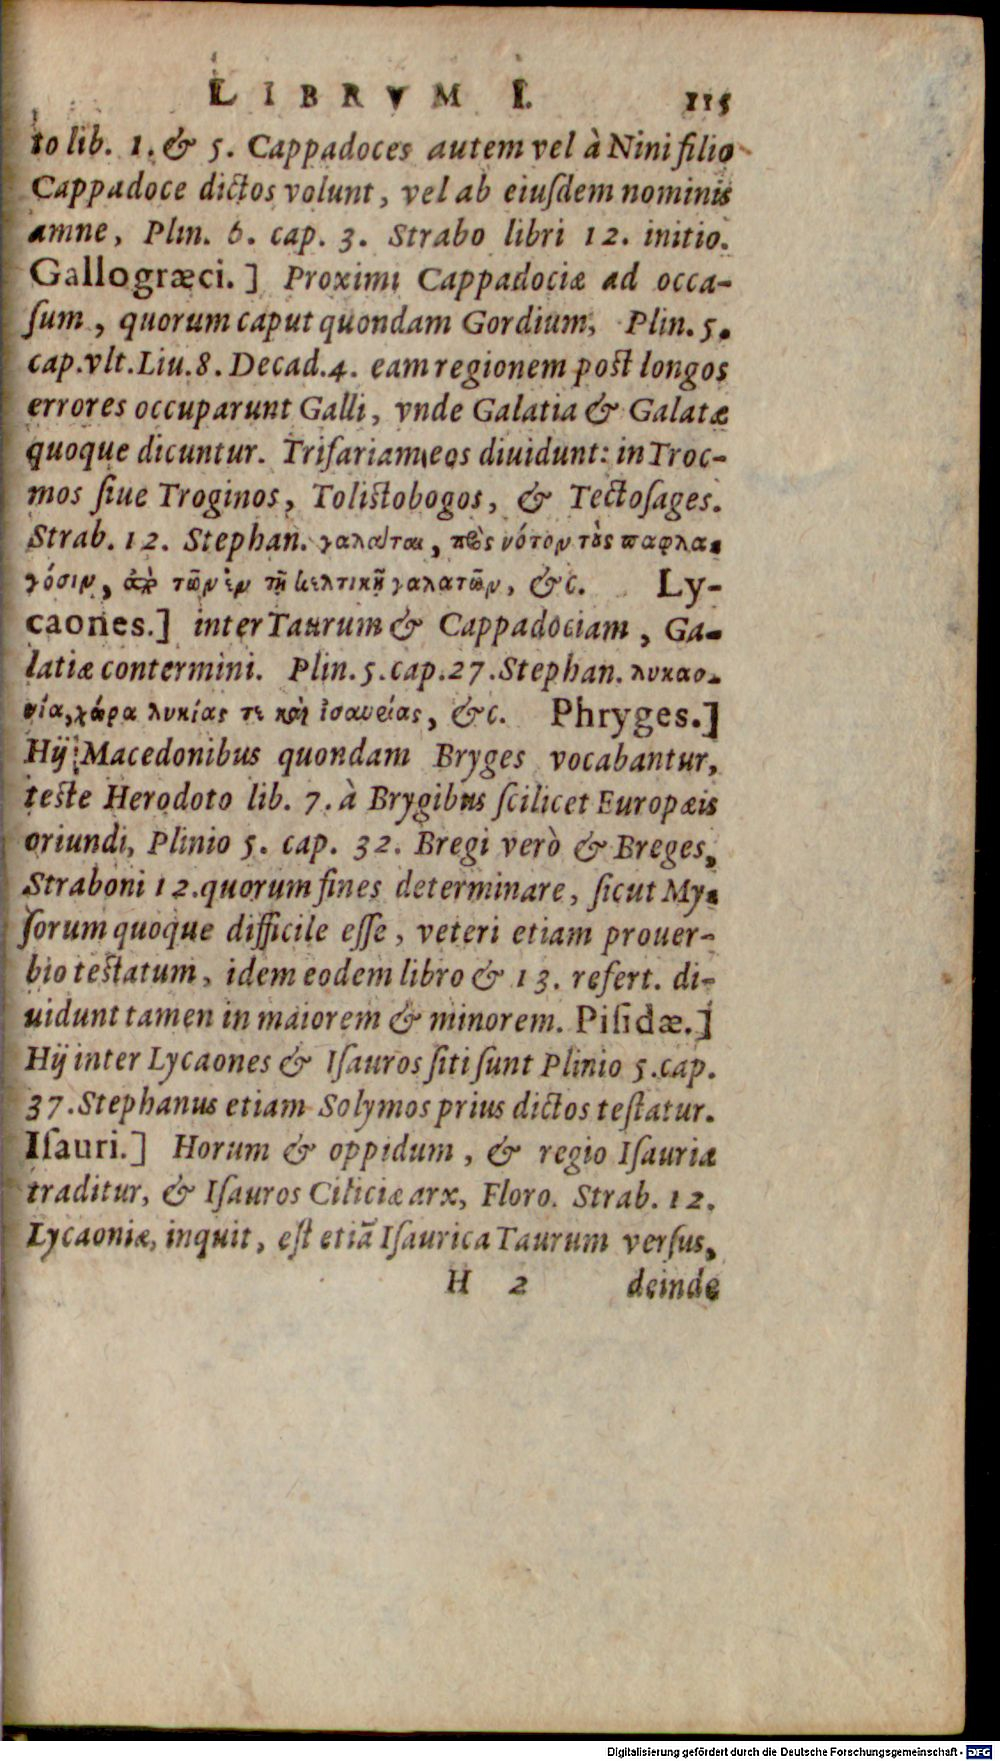 LIBRVM I. 115
to lib. 1. & 5. Cappadoces autem vel à Nini filio
Cappadoce dictos volunt, vel ab eiuſdem nominis
amne, Plin. 6. cap. 3. Strabo libri 12. initio.
Gallogræci.] Proximi Cappadociæ ad occa-
ſum, quorum caput quondam Gordium, Plin. 5.
cap. vlt. Liu. 8. Decad. 4. eam regionem post longos
errores occuparunt Galli, vnde Galatia & Galatæ
quoque dicuntur. Trifariam eos diuidunt: in Troc-
mos ſiue Troginos, Tolistobogos, & Tectoſages.
Strab. 12. Stephan. γαλάται, πρὸς νότον τοῖς παφλα-
γόσιν, ἀπὸ τῶν ἐν τῇ κελτικῇ γαλατῶν, &c. Ly-
caones.] inter Taurum & Cappadociam, Ga-
latiæ contermini. Plin. 5. cap. 27. Stephan. λυκαο-
νία, χώρα λυκίας τε καὶ ἰσαυρίας, &c. Phryges.]
Hij Macedonibus quondam Bryges vocabantur,
teste Herodoto lib. 7. à Brygibus ſcilicet Europæis
oriundi, Plinio 5. cap. 32. Bregi verò & Breges,
Straboni 12. quorum fines determinare, ſicut My-
ſorum quoque difficile eſſe, veteri etiam prouer-
bio testatum, idem eodem libro & 13. refert. di-
uidunt tamen in maiorem & minorem. Piſidæ.]
Hij inter Lycaones & Iſauros ſiti ſunt Plinio 5. cap.
37. Stephanus etiam Solymos prius dictos teſtatur.
Iſauri.] Horum & oppidum, & regio Iſauria
traditur, & Iſauros Ciliciæ arx, Floro. Strab. 12.
Lycaoniæ, inquit, eſt etiã Iſaurica Taurum verſus,
H 2 deinde
Digitalisierung gefördert durch die Deutsche Forschungsgemeinschaft - DFG